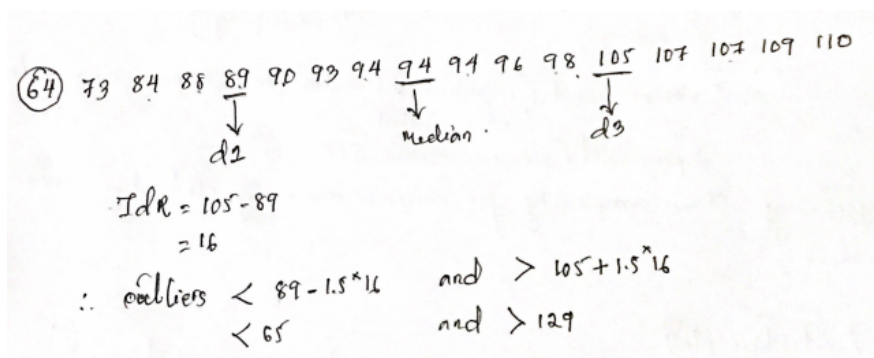 64 73 84 88 89 90 93 94 94 94 96 98 105 107 107 109 110
d1 median. d3
IdR = 105-89
= 16
∴ outliers < 89-1.5*16 and > 105+1.5*16
< 65 and > 129